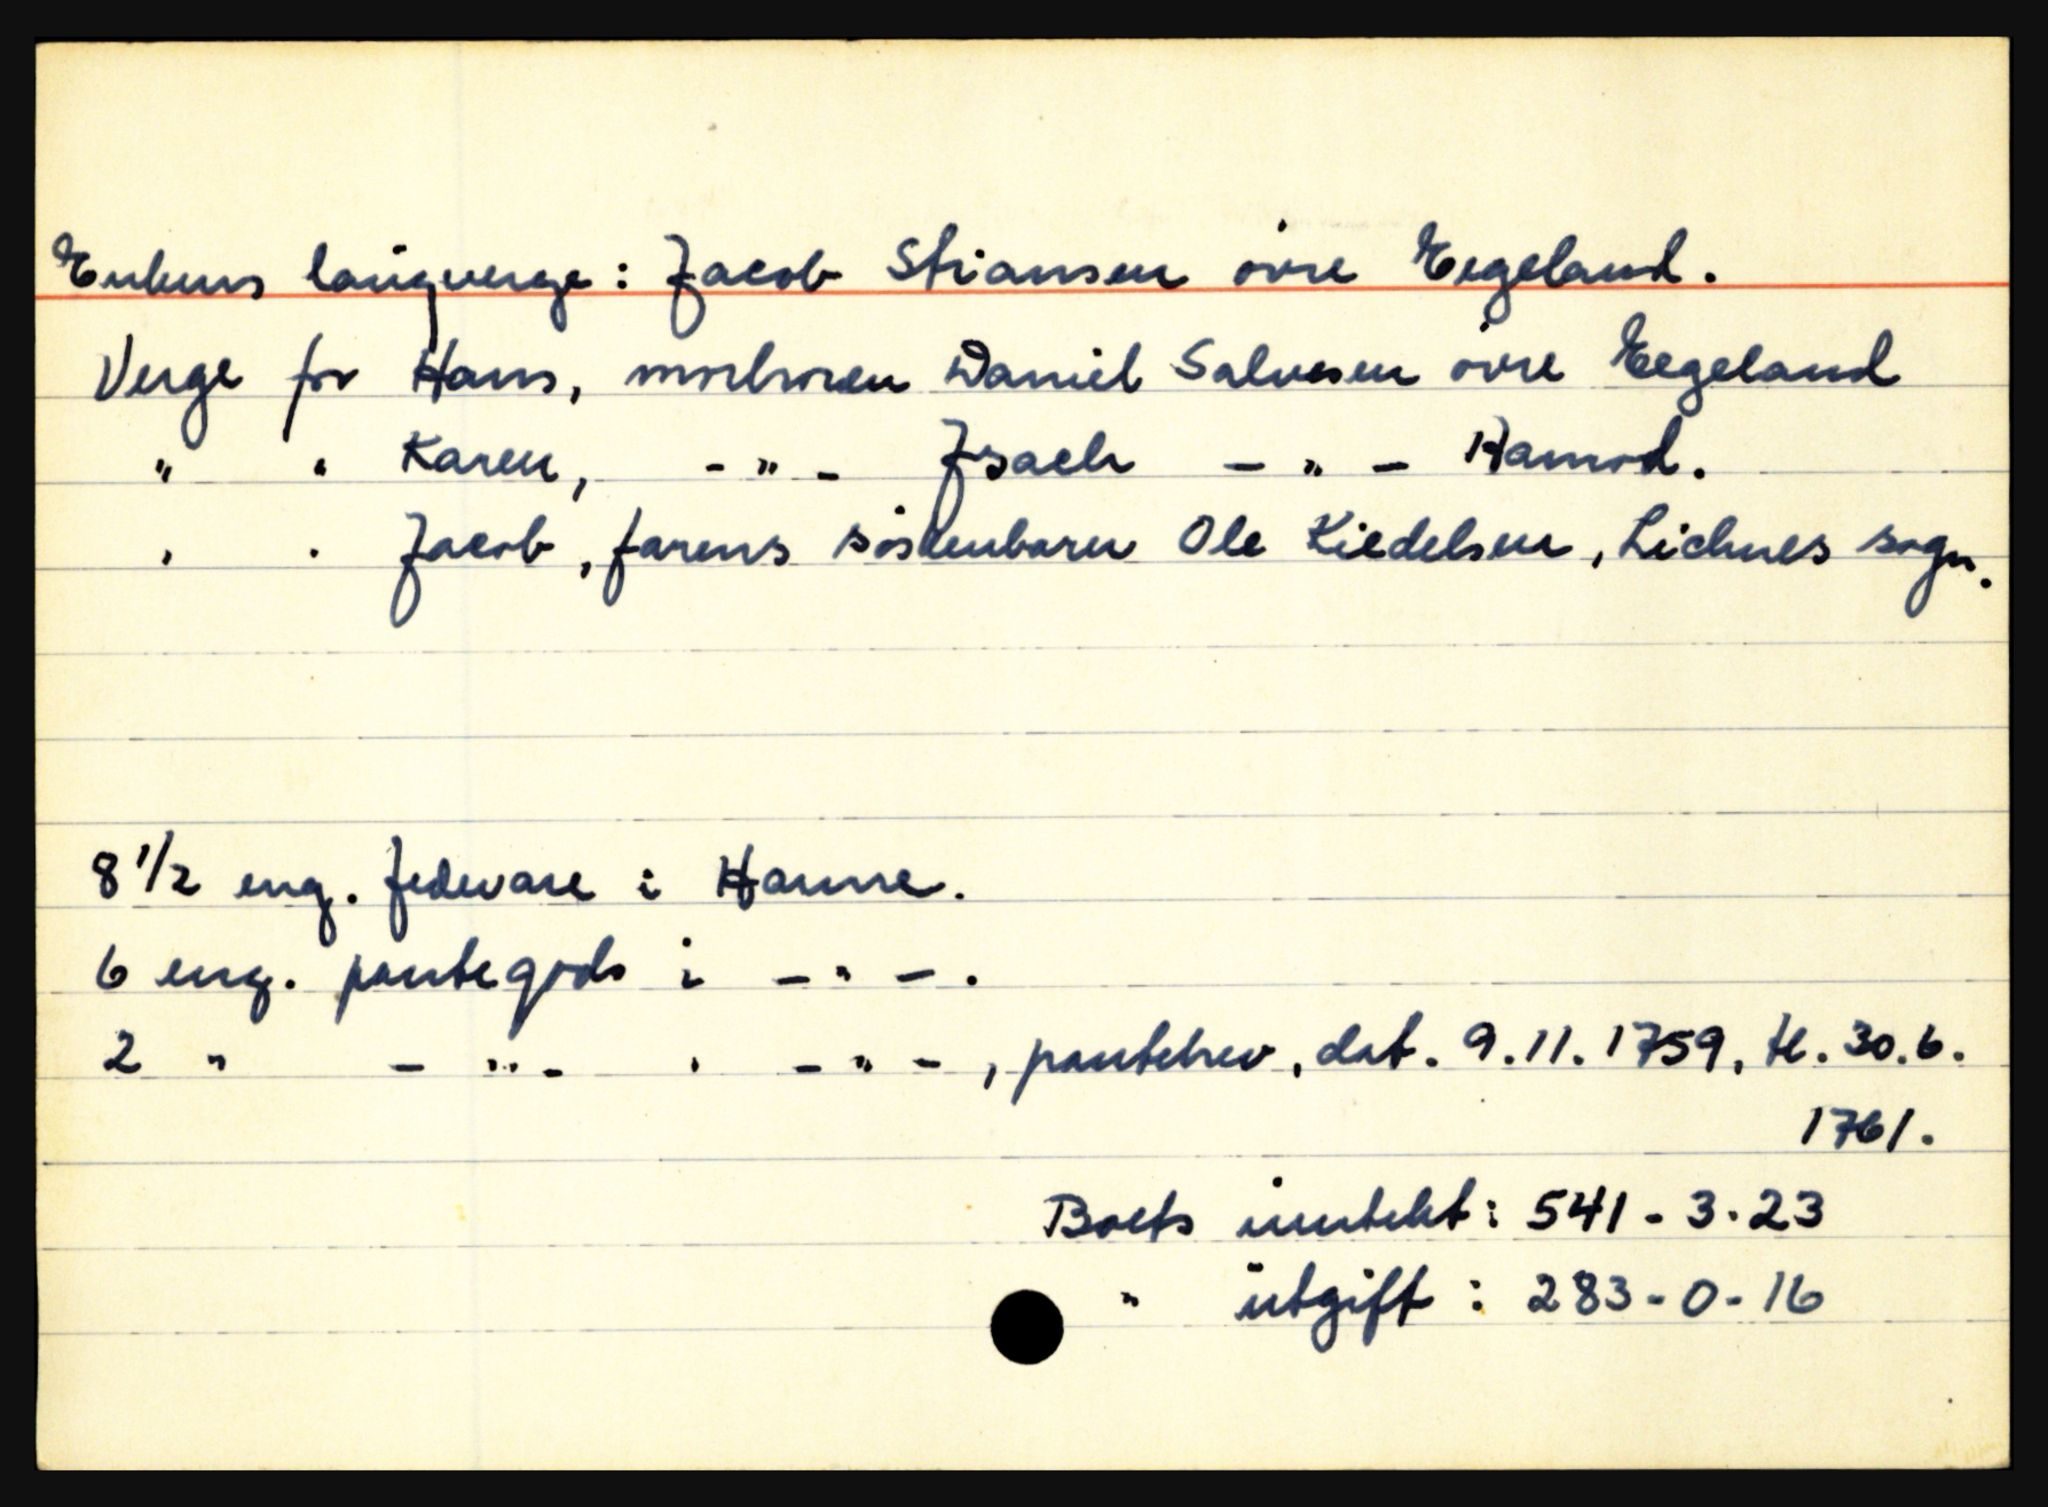 Enkens laugverge: Jacob Stiansen øvre Eegeland.
Verge for Hans, morbroren Daniel Salvesen øvre Eegeland
" " Karen, - " - Isach - " - Ramod.
" " Jacob, farens søskenbarn Ole Kiedelsen, Lichnes sogn.
8 1/2 eng. fedevare i Hanne.
6 eng. pantegods i - " - .
2 " - " - " - " - , pantebrev, dat. 9.11.1759, tl. 30.6.
1761.
Boets inntekt: 541 - 3 - 23
" utgift : 283 - 0 - 16